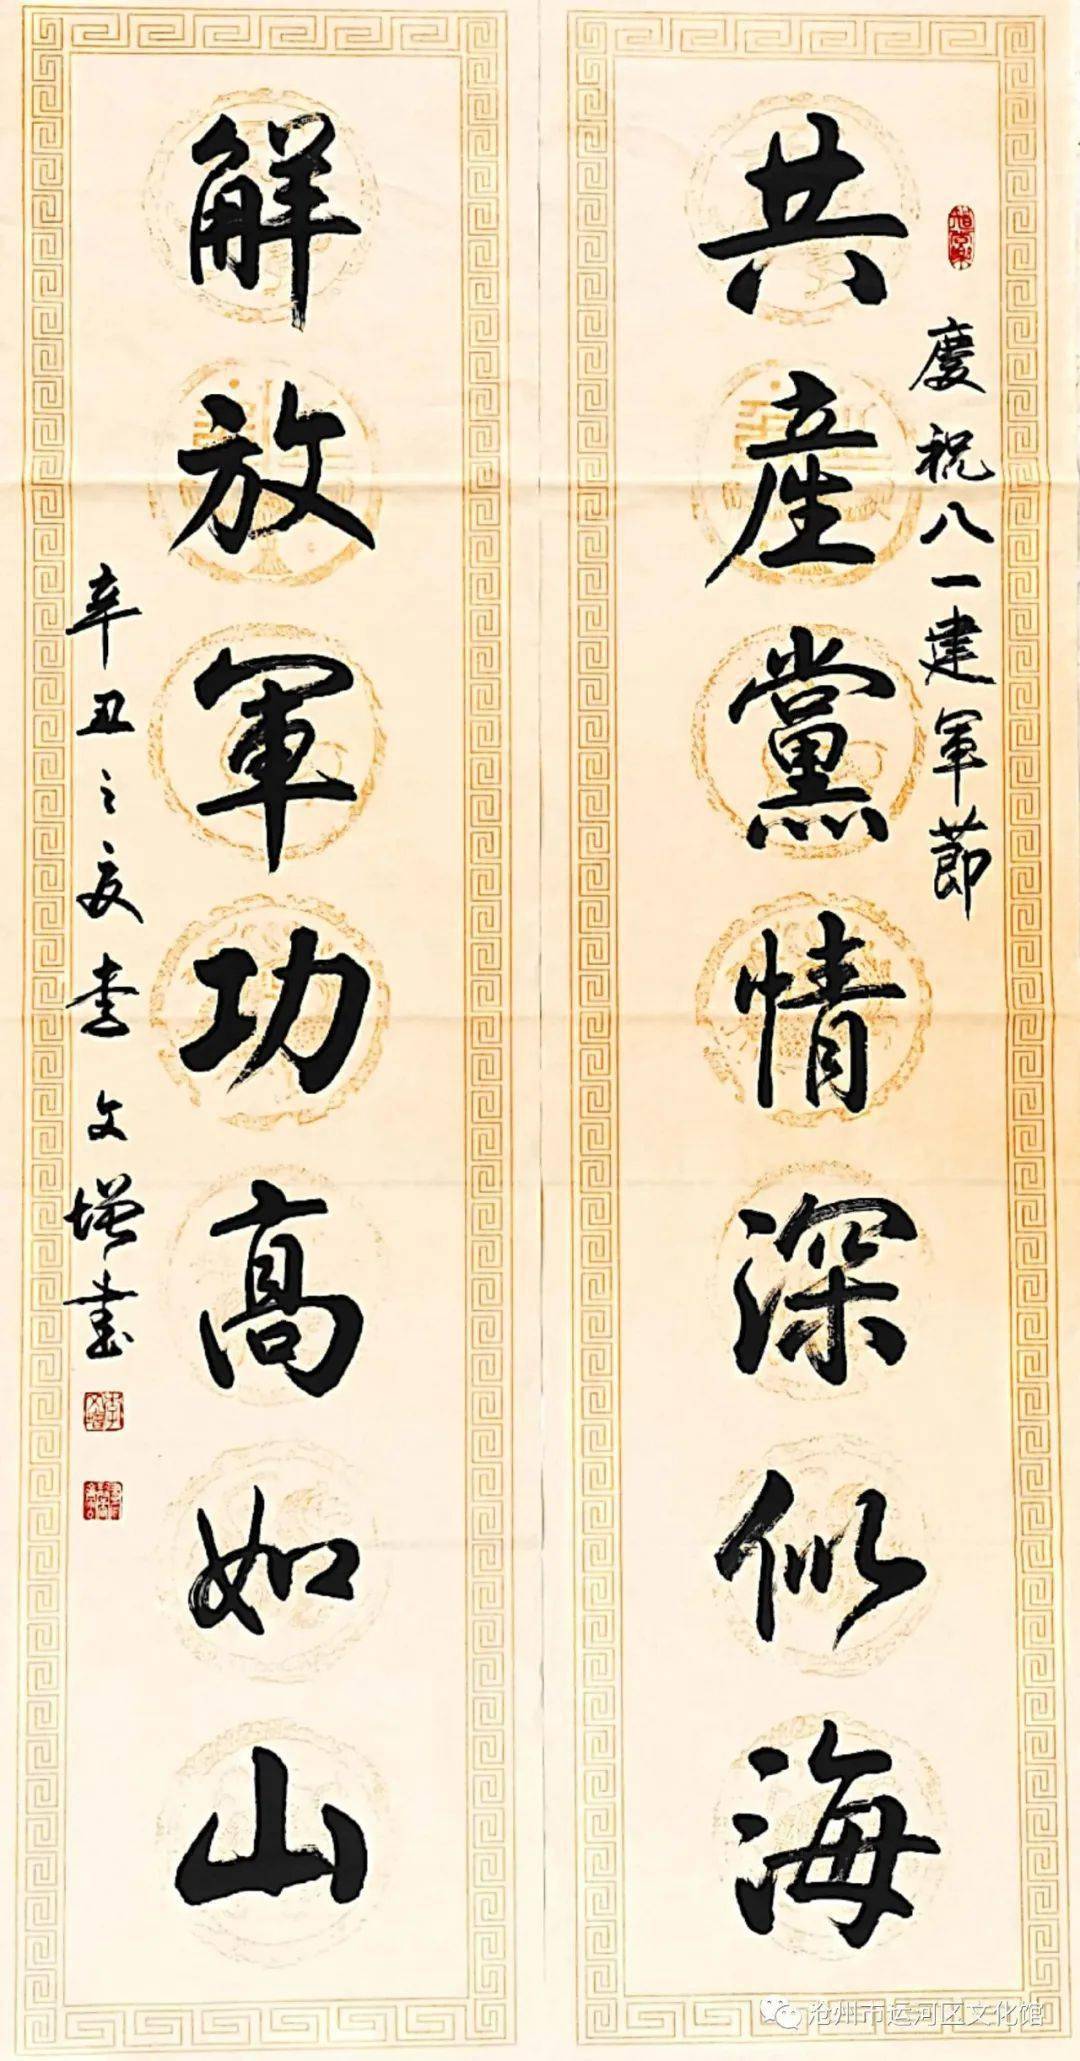 慶祝八一建軍節
共産黨情深似海
解放軍功高如山
辛丑之夏李文增書
沧州市运河区文化馆